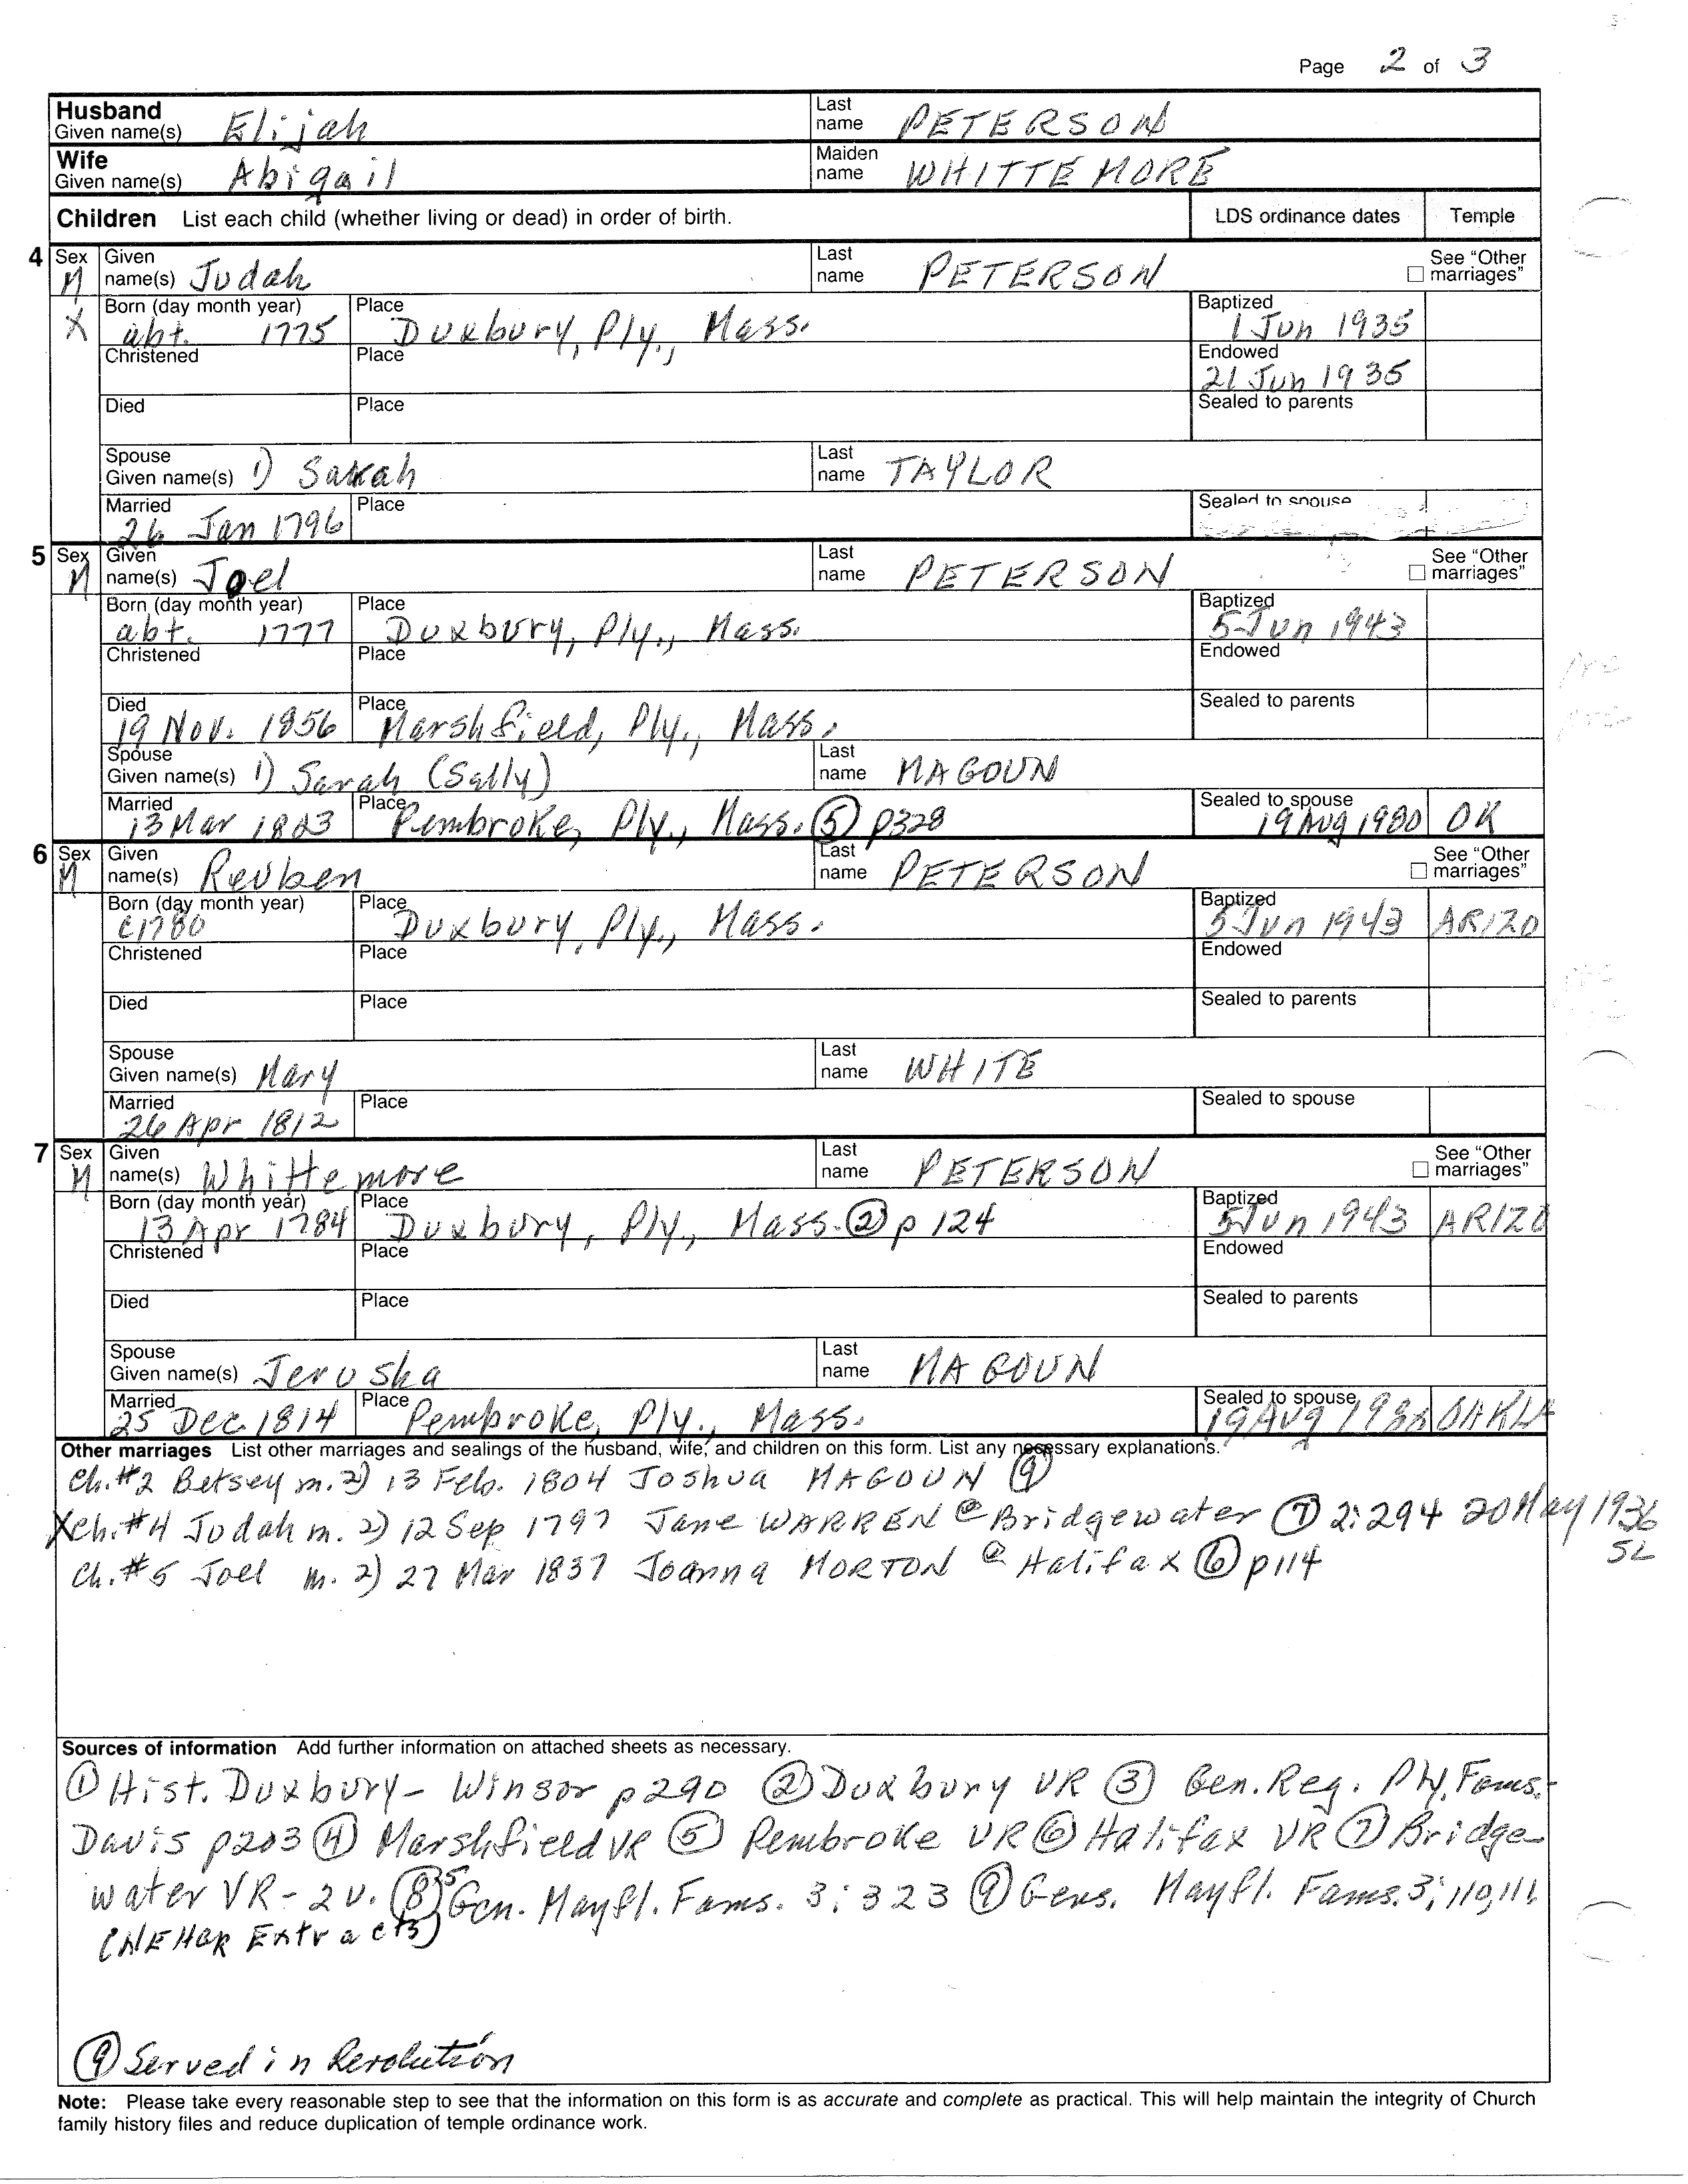 Page 2 of 3
Husband Given name(s) Elijah Last name PETERSON
Wife Given name(s) Abigail Maiden name WHITTEMORE
Children List each child (whether living or dead) in order of birth. LDS ordinance dates Temple
4 Sex M Given name(s) Judah Last name PETERSON See "Other marriages"
X Born (day month year) abt. 1775 Place Duxbury, Ply., Mass. Baptized 1 Jun 1935
Christened Place Endowed 21 Jun 1935
Died Place Sealed to parents
Spouse Given name(s) 1) Sarah Last name TAYLOR
Married 26 Jan 1796 Place Sealed to spouse
5 Sex M Given name(s) Joel Last name PETERSON See "Other marriages"
Born (day month year) abt. 1777 Place Duxbury, Ply., Mass. Baptized 5 Jun 1943
Christened Place Endowed
Died 19 Nov. 1856 Place Marshfield, Ply., Mass. Sealed to parents
Spouse Given name(s) 1) Sarah (Sally) Last name MAGOUN
Married 13 Mar 1803 Place Pembroke, Ply., Mass. (5) p328 Sealed to spouse 19 Aug 1980 OK
6 Sex M Given name(s) Reuben Last name PETERSON See "Other marriages"
Born (day month year) C1780 Place Duxbury, Ply., Mass. Baptized 5 Jun 1943 ARIZO
Christened Place Endowed
Died Place Sealed to parents
Spouse Given name(s) Mary Last name WHITE
Married 26 Apr 1812 Place Sealed to spouse
7 Sex M Given name(s) Whittemore Last name PETERSON See "Other marriages"
Born (day month year) 13 Apr 1784 Place Duxbury, Ply., Mass. (2) p 124 Baptized 5 Jun 1943 ARIZO
Christened Place Endowed
Died Place Sealed to parents
Spouse Given name(s) Jerusha Last name MAGOUN
Married 25 Dec 1814 Place Pembroke, Ply., Mass. Sealed to spouse 19 Aug OAKLA
Other marriages List other marriages and sealings of the husband, wife, and children on this form. List any necessary explanations.
Ch. #2 Betsey m. 2) 13 Feb. 1804 Joshua MAGOUN (9)
X Ch. #4 Judah m. 2) 12 Sep 1797 Jane WARREN @ Bridgewater (7) 2:294 20 May 1936 SL
Ch. #5 Joel m. 2) 27 Mar 1837 Joanna MORTON @ Halifax (6) p114
Sources of information Add further information on attached sheets as necessary.
(1) Hist. Duxbury - Winsor p290 (2) Duxbury VR (3) Gen. Reg. Ply. Fams. -
Davis p203 (4) Marshfield VR (5) Pembroke VR (6) Halifax VR (7) Bridge-
water VR - 2 v. (8) Gen. Mayfl. Fams. 3:323 (9) Gens. Mayfl. Fams. 3:110,111
(NEHGR Extracts)
(9) Served in Revolution
Note: Please take every reasonable step to see that the information on this form is as accurate and complete as practical. This will help maintain the integrity of Church
family history files and reduce duplication of temple ordinance work.